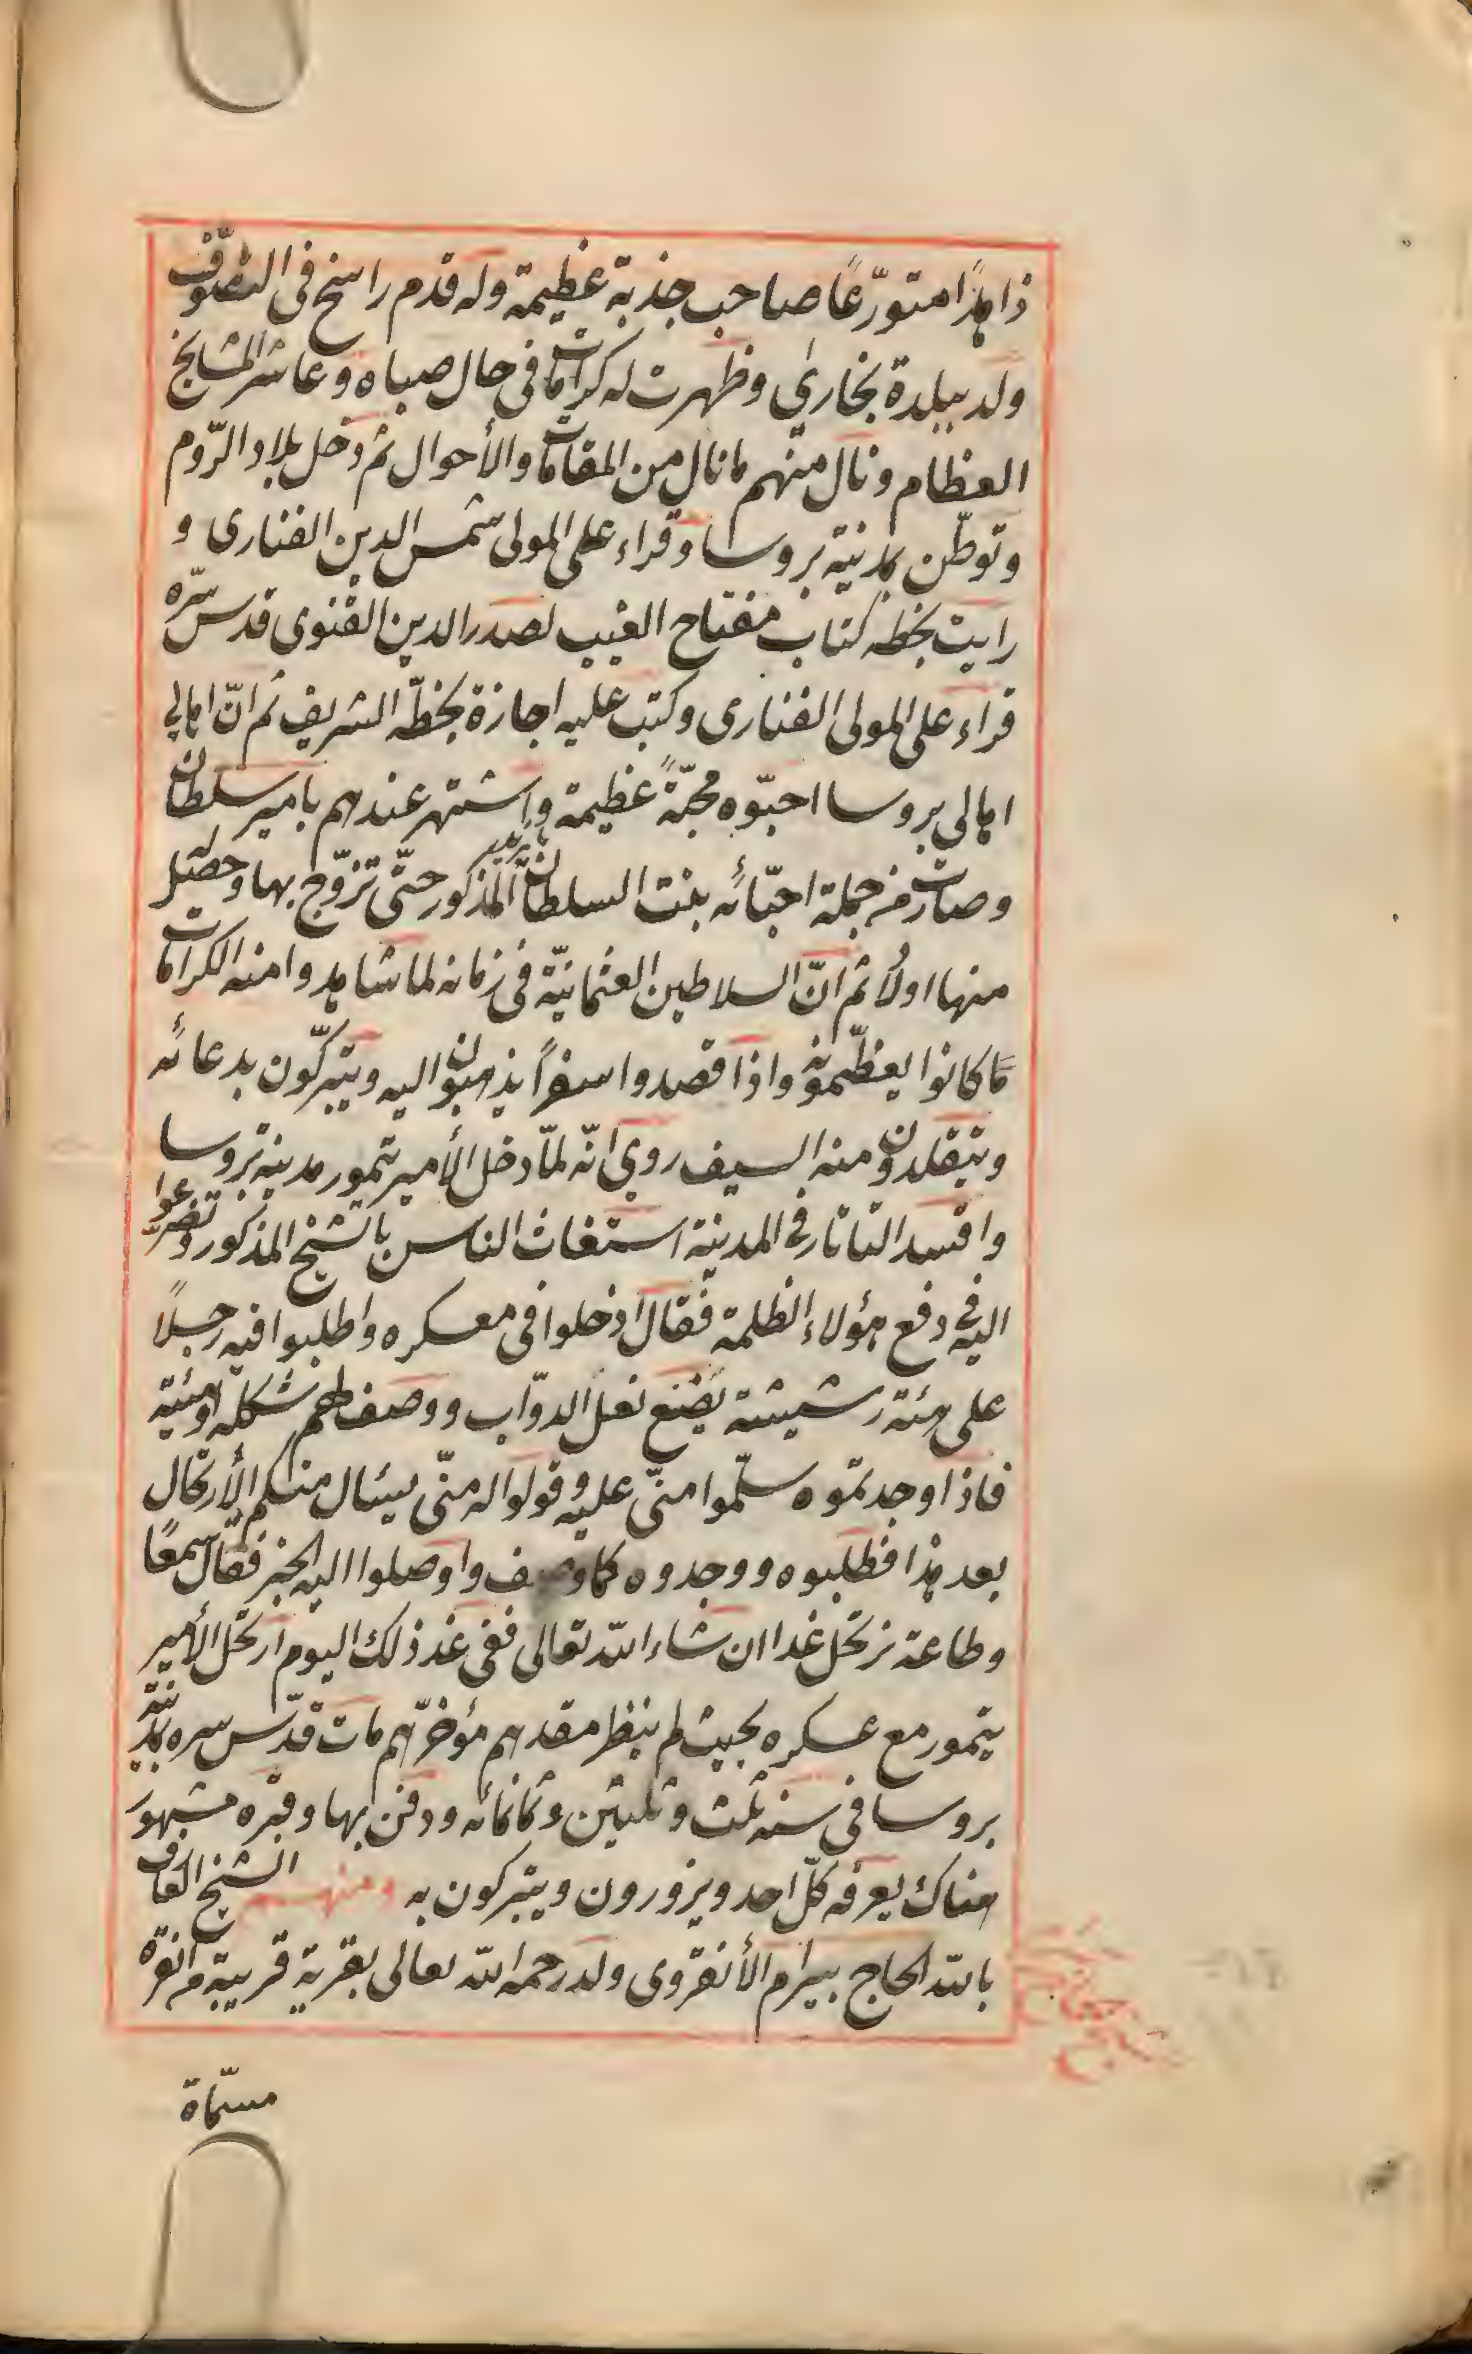 زاهدًا متورّعًا صاحب جذبة عظيمة وله قدم راسخ فى التصوّف
ولد ببلدة بخارى وظهرت له كرامات فى حال صباه وعاشر المشايخ
العظام ونال منهم ما نال من المقامات والأحوال ثم دخل بلاد الرّوم
وتوطّن بمدينة بروسا وقراء على المولى شمس الدين الفنارى و
رايت بخطه كتاب مفتاح الغيب لصدر الدين القنوى قدس سرّه
قراء على المولى الفنارى وكتب عليه اجازة بخطّه الشريف ثم انّ اهالى
اهالى بروسا احبّوه محبّةً عظيمة واشتهر عندهم بامير سلطان
وصارت من جملة احبّائه بنت السلطان بايزيد المذكور حتّى تزوّج بها وحصل له
منها اولاد ثم انّ السلاطين العثمانيّة فى زمانه لما شاهدوا منه الكرامات
ما كانوا يعظّمونه واذا قصدوا سفرًا يذهبون اليه ويتبرّكون بدعائه
ويتقلدون منه السيف روى انّه لمّا دخل الأمير تيمور مدينة بروسا
وافسد التاتار فى المدينة استغاث الناس بالشيخ المذكور وتضرّعوا
اليه فى دفع هؤلاء الظلمة فقال ادخلوا فى معسكره واطلبوا فيه رجلًا
على هئة رشيشة يصنع نعل الدوّاب ووصف لهم شكله وهئية
فاذا وجدتموه سلّموا منّى عليه وقولوا له منّى يسئال منكم الأرتحال
بعد هذا فطلبوه ووجدوه كما وصف واوصلوا اليه الخبر فقال سمعًا
وطاعة نرتحل غدا ان شاء الله تعالى ففى غد ذلك اليوم ارتحل الأمير
تيمور مع عسكره بحيث لم ينظر مقدهم مؤخرّهم مات قدّس سره بمدينة
بروسا فى سنه ثلث وثلثين وثمانمائه ودفن بها وقبره مشهور
هناك يعرفه كلّ احد ويزورون ويتبركون به ومنهم الشيخ العارف
بالله الحاج بيرام الأنقروى ولد رحمه الله تعالى بقرية قريبة من انقرة
مسمّاة